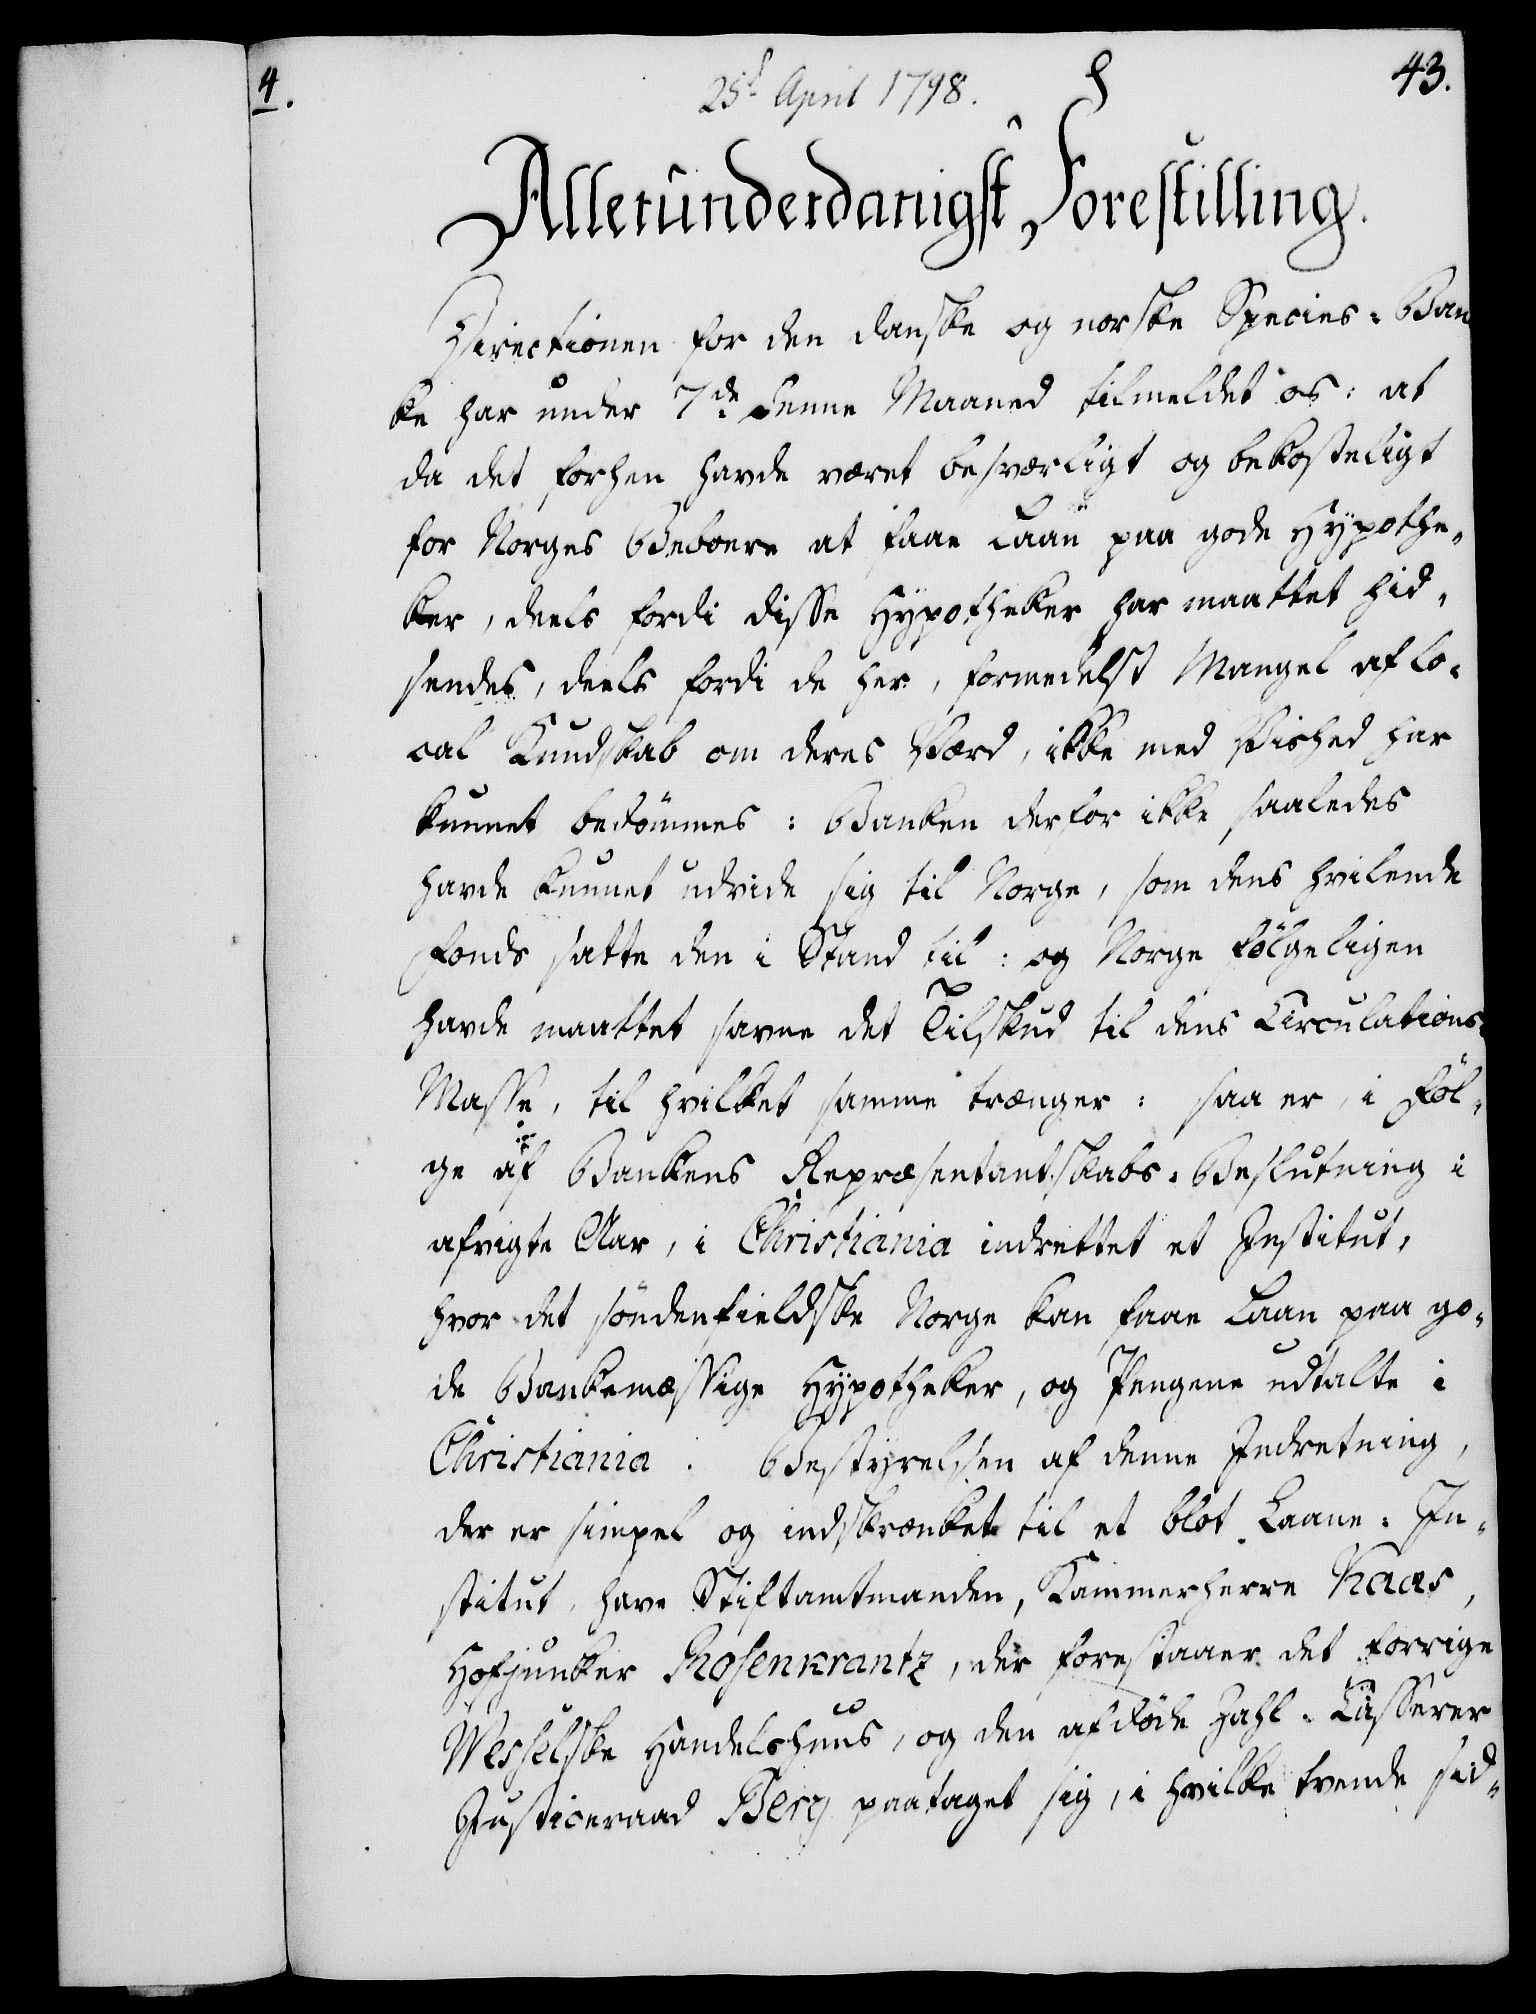 4.
25d April 1798.
43.
Allerunderdanigst Forestilling.
Directionen for den danske og norske Species-Ban
ke har under 7de denne Maaned tilmeldet os: at
da det forhen havde været besværligt og bekosteligt
for Norges Beboere at faae Laan paa gode Hypothe-
ker, deels fordi disse Hypotheker har maattet hid-
sendes, deels fordi de her, formedelst Mangel af lo-
cal Kundskab om deres Værd, ikke med Vished har
kunnet bedömmes: Banken derfor ikke saaledes
havde kunnet udvide sig til Norge, som dens hvilende
Fonds satte den i Stand til: og Norge fölgeligen
havde maattet savne det Tilskud til dens Circulations-
Masse, til hvilket samme trænger: saa er, i Föl-
ge af Bankens Repræsentantskabs-Beslutning i
afvigte Aar, i Christiania indrettet et Institut,
hvor det söndenfieldske Norge kan faae Laan paa go-
de Bankemæssige Hypotheker, og Pengene udtalte i
Christiania. Bestyrelsen af denne Indretning,
der er simpel og indskrænket til et blot Laane-In-
stitut, have Stiftamtmanden, Kammerherre Kaas,
Hofjunker Rosenkrantz, der forestaaer det forrige
Wesselske Handelshuus, og den afdöde Zahl-Casserer
Justiceraad Berg paataget sig, i hvilke tvende sid-